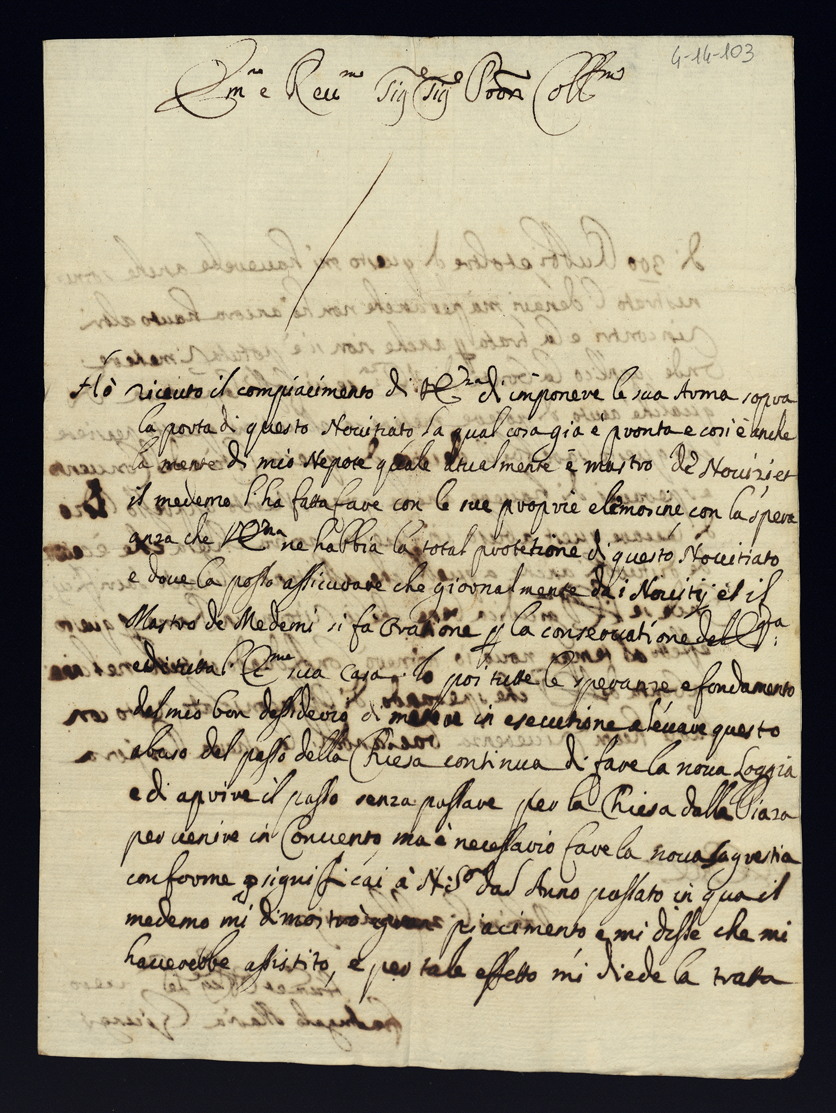 4-14-103
Em.mo e Reu.mo Sig.e Sig.e Pron Coll.mo
Hò riceuto il compiacimento di V.E.za di imponere le sua Arma sopra
la porta di questo Novitiato la qual cosa gia è pronta e così è anche
la mente di mio Nepote quale atualmente è mastro de Novizi et
il medemo l'ha fatta fare con le sue proprie elemosine con la spera
anza che V.E.ma ne habbia la total protetione di questo Novitiato
e dove la posso assicurare che giornalmente da i Novitij et il
Mastro de Medemi si fa Oratione per la conservatione del E.ma
e di tutta l'E.ma sua Casa. Io poi tutte le speranze e fondamento
del mio bon dessiderio di metere in esecutione e levare questo
abuso del passo della Chiesa continua di fare la nova Loggia
e di aprire il passo senza passare per la Chiesa dalla Piaza
per venire in Convento ma è necessario fare la nova sagrestia
conforme significai à N: S.re dal Anno passato in qua il
medemo mi dimostrò gran piacimento e mi disse che mi
haverebbe assistito, e per tale effetto mi diede la tratta